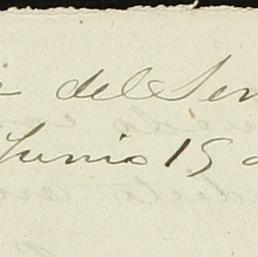 del Sen
Junio 15 d